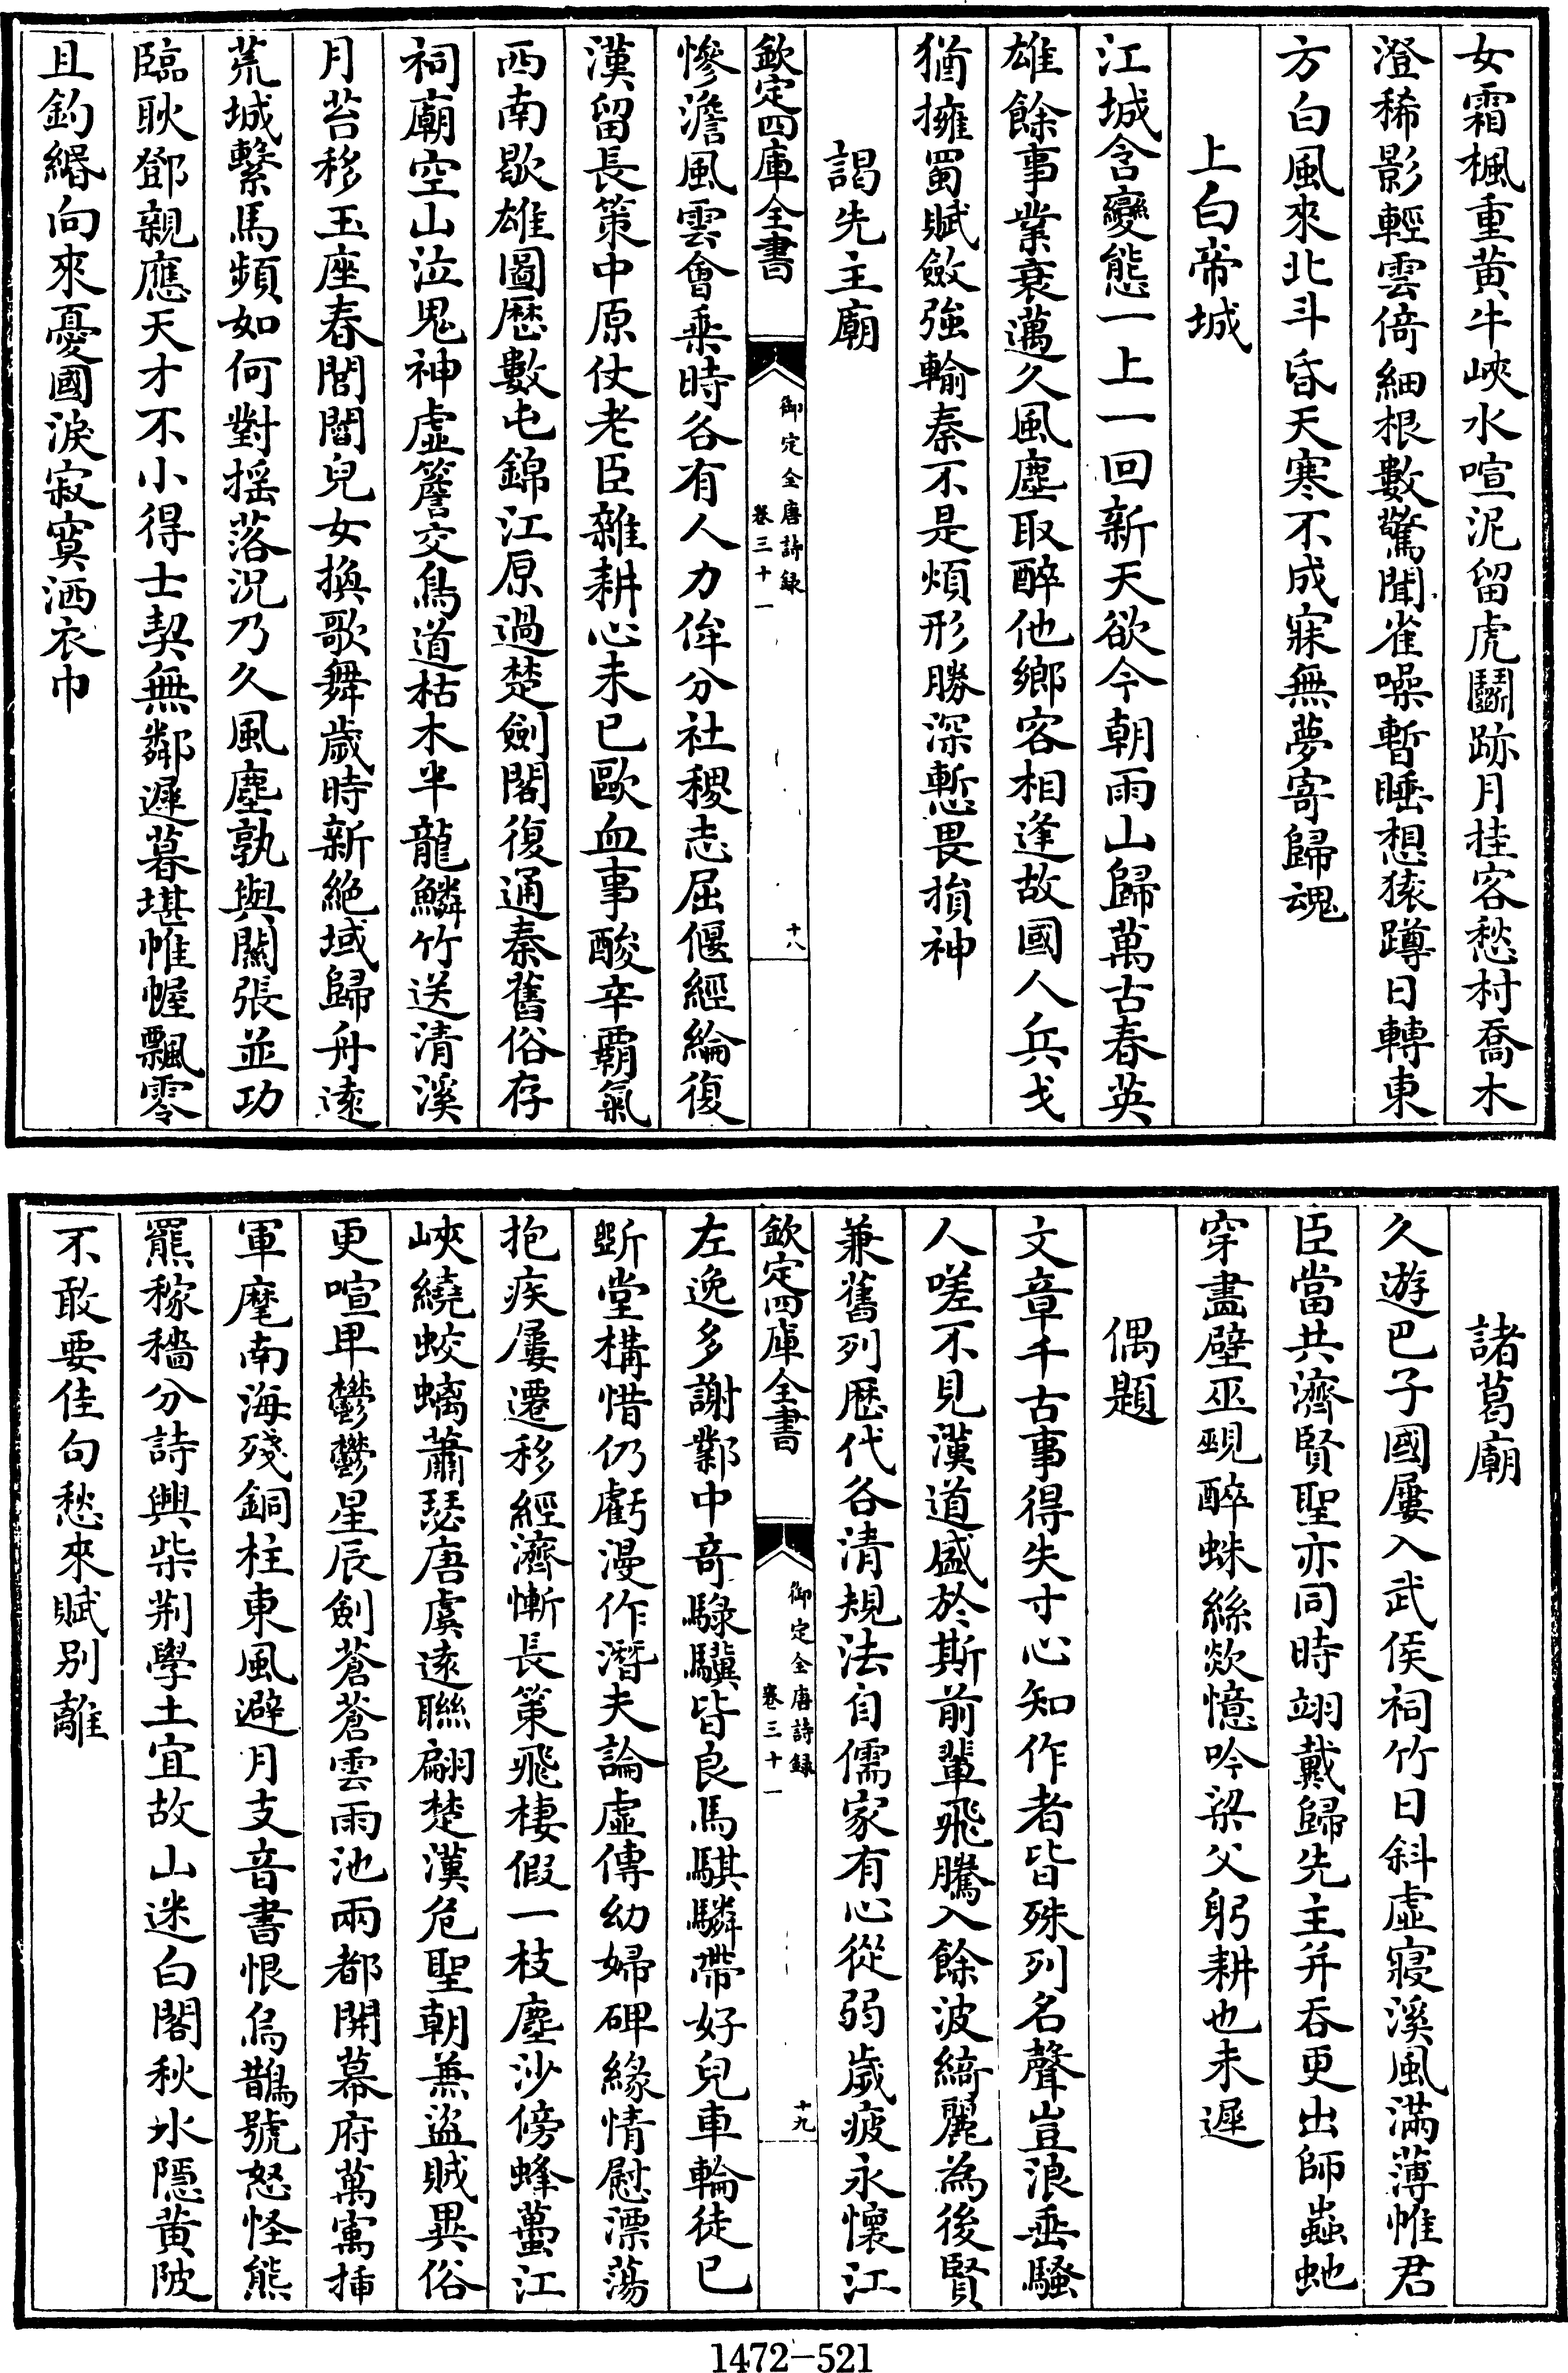 女霜楓重黄牛峽水喧泥留虎鬬跡月挂客愁村喬木
澄稀影輕雲倚細根數驚聞雀噪暫睡想猿蹲日轉東
方白風來北斗昏天寒不成寐無夢寄歸魂
上白帝城
江城含變態一上一回新天欲今朝雨山歸萬古春英
雄餘事業衰邁久風塵取醉他鄉客相逢故國人兵戈
猶擁蜀賦斂強輸秦不是煩形勝深慙畏損神
謁先主廟
欽定四庫全書
御定全唐詩録
卷三十一
十八
慘澹風雲會乗時各有人力侔分社稷志屈偃經綸復
漢留長策中原仗老臣雜耕心未已歐血事酸辛霸氣
西南歇雄圖歴數屯錦江原過楚劍閣復通秦舊俗存
祠廟空山泣鬼神虚簷交鳥道枯木半龍鱗竹送清溪
月苔移玉座春閭閻兒女換歌舞歲時新絶域歸舟逺
荒城繫馬頻如何對摇落況乃久風塵孰與關張並功
臨耿鄧親應天才不小得士契無鄰遲暮堪帷幄飄零
且釣緡向來憂國淚寂寞洒衣巾
諸葛廟
久遊巴子國屢入武侯祠竹日斜虚寢溪風滿薄帷君
臣當共濟賢聖亦同時翊戴歸先主并吞更出師蟲虵
穿畫壁巫覡醉蛛絲歘憶吟梁父躬耕也未遲
偶題
文章千古事得失寸心知作者皆殊列名聲豈浪垂騷
人嗟不見漢道盛於斯前輩飛騰入餘波綺麗為後賢
兼舊列歴代各清規法自儒家有心從弱歲疲永懷江
欽定四庫全書
御定全唐詩録
卷三十一
十九
左逸多謝鄴中竒騄驥皆良馬騏驎帶好兒車輪徒已
斲堂構惜仍虧漫作潛夫論虚傳幼婦碑緣情慰漂蕩
抱疾屢遷移經濟慚長策飛棲假一枝塵沙傍蜂蠆江
峽繞蛟螭蕭瑟唐虞逺聯翩楚漢危聖朝兼盜賊異俗
更喧卑鬱鬱星辰劍蒼蒼雲雨池兩都開幕府萬㝢插
軍麾南海殘銅柱東風避月支音書恨烏鵲號怒怪熊
羆稼穡分詩興柴荆學土宜故山迷白閣秋水隠黄陂
不敢要佳句愁來賦别離
1472-521